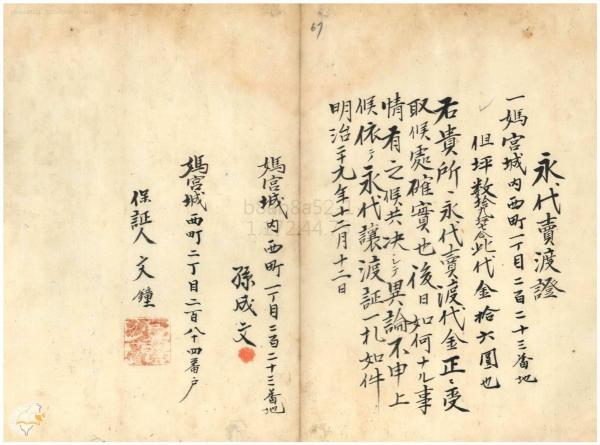 67
永代賣渡證
一媽宮城内西町一丁目二百二十三番地
但坪数 此代金拾六圓也
右貴所ヘ永代賣渡代金正ニ受
取候處確實也後日如何ナル事
情有之候共決シテ異論不申上
候依テ永代讓渡証一札如件
明治二十九年十二月十二日
媽宮城内西町一丁目二百二十三番地
孫成文
媽宮城西町二丁目二百八十四番户
保証人 文鐘